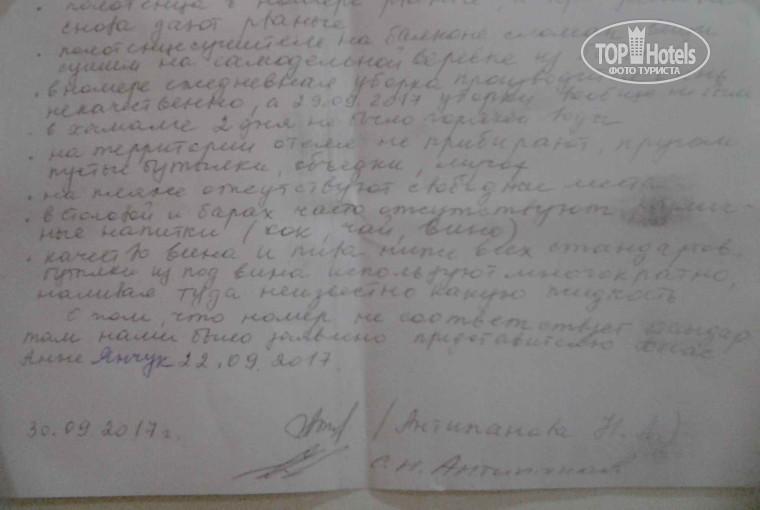 полотенца в номере рваные, и при
снова дают рваные
полотенцесушители на балконе
сушим на самодельной верёвке из
TOP Hotels
ФОТО ТУРИСТА
· в номере ежедневная уборка
некачественно, а 29.09.2017 уборки вообще не было
· в хамаме 2 дня не было горячей воды
· на территории отеля не прибирают, кругом
пустые бутылки, объедки, мусор
· на пляже отсутствуют свободные места
· в столовой и барах часто отсутствуют
ные напитки (сок, чай, вино)
· качество вина и пива ниже всех стандартов.
Бутылки из под вина используют многократно,
наливая туда неизвестно какую жидкость
О том, что номер не соответствует стандар
там нами было заявлено представителю
Анне Янчук 22.09.2017.
30.09.2017г. (Антипанова Н.